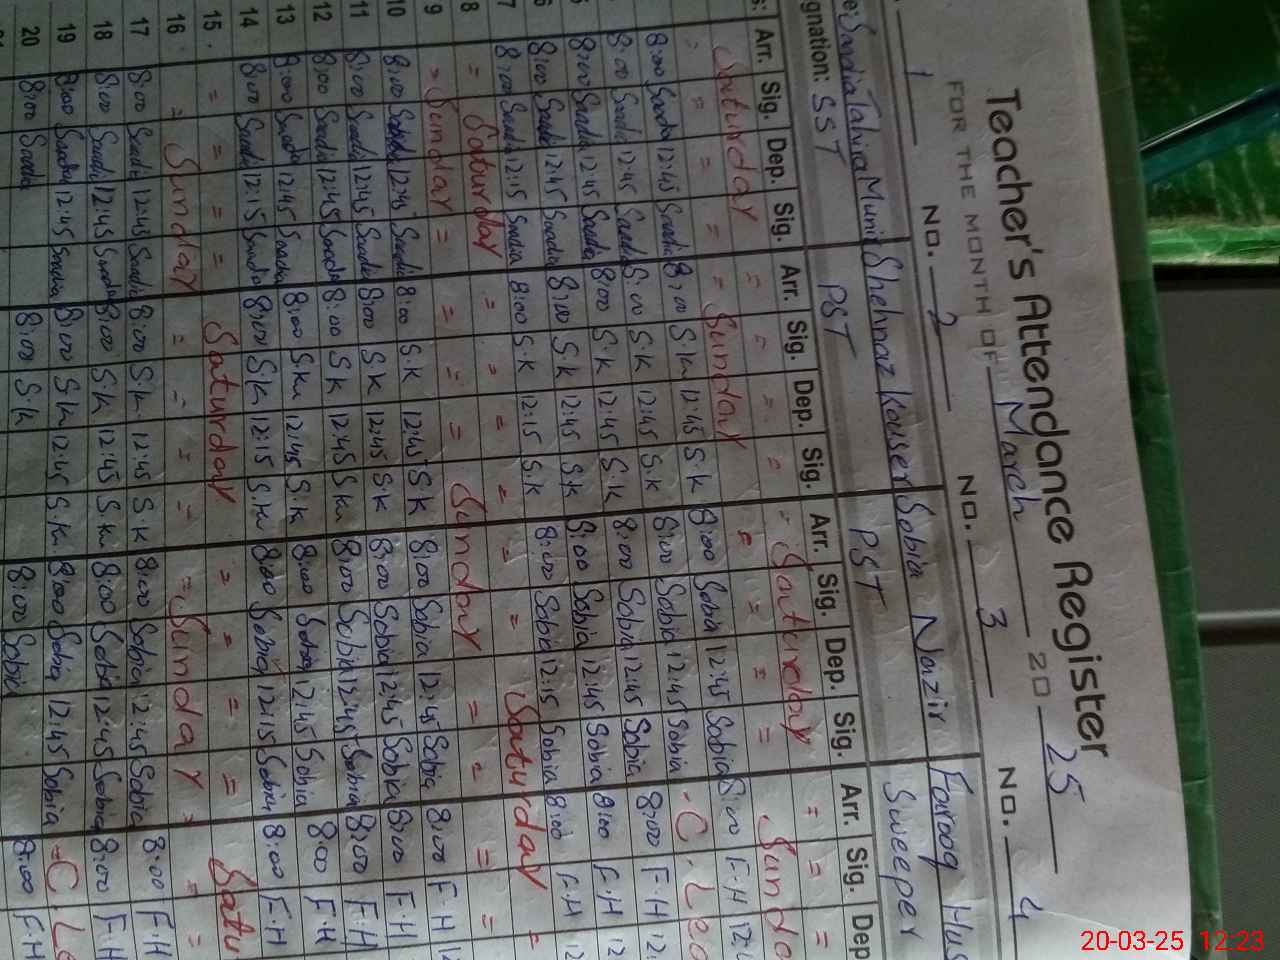 Teacher's Attendance Register
FOR THE MONTH OF March 2025
1 NO. 2 NO. 3 NO. 4
Saadia Tahira Munir Shehnaz Kouser Sobia Nazir Farooq Hus
gnation: SST PST PST Sweeper
Arr. Sig. Dep. Sig. Arr. Sig. Dep. Sig. Arr. Sig. Dep. Sig. Arr. Sig. Dep
Saturday = = = = Saturday = =
= = = = Sunday = = = Sunda
8:00 Saadia 12:45 Saadia 8:00 S.K 12:45 S.K 8:00 Sobia 12:45 Sobia 8:00 F.H 12:4
8:00 Saadia 12:45 Saadia 8:00 S.K 12:45 S.K 8:00 Sobia 12:45 Sobia - C. Lea
8:00 Saadia 12:45 Saadia 8:00 S.K 12:45 S.K 8:00 Sobia 12:45 Sobia 8:00 F.H 12:
6 8:00 Saadia 12:45 Saadia 8:00 S.K 12:45 S.K 8:00 Sobia 12:45 Sobia 8:00 F.H 12
7 8:00 Saadia 12:15 Saadia 8:00 S.K 12:15 S.K 8:00 Sobia 12:15 Sobia 8:00 F.H 12
8 = Saturday = = = = = = Saturday =
9 = Sunday = = = = Sunday = = = =
10 8:00 Saadia 12:45 Saadia 8:00 S.K 12:45 S.K 8:00 Sobia 12:45 Sobia 8:00 F.H 12
11 8:00 Saadia 12:45 Saadia 8:00 S.K 12:45 S.K 8:00 Sobia 12:45 Sobia 8:00 F.H
12 8:00 Saadia 12:45 Saadia 8:00 S.K 12:45 S.K 8:00 Sobia 12:45 Sobia 8:00 F.H
13 8:00 Saadia 12:45 Saadia 8:00 S.K 12:45 S.K 8:00 Sobia 12:45 Sobia 8:00 F.H
14 8:00 Saadia 12:15 Saadia 8:00 S.K 12:15 S.K 8:00 Sobia 12:15 Sobia 8:00 F.H
15 = = = = Saturday = = = = Satu
16 = Sunday = = = = = Sunday = = =
17 8:00 Saadia 12:45 Saadia 8:00 S.K 12:45 S.K 8:00 Sobia 12:45 Sobia 8:00 F.H
18 8:00 Saadia 12:45 Saadia 8:00 S.K 12:45 S.K 8:00 Sobia 12:45 Sobia 8:00 F.H
19 8:00 Saadia 12:45 Saadia 8:00 S.K 12:45 S.K 8:00 Sobia 12:45 Sobia - C Le
20 8:00 Saadia 8:00 S.K 8:00 Sobia 8:00 F.H
20-03-25 12:23